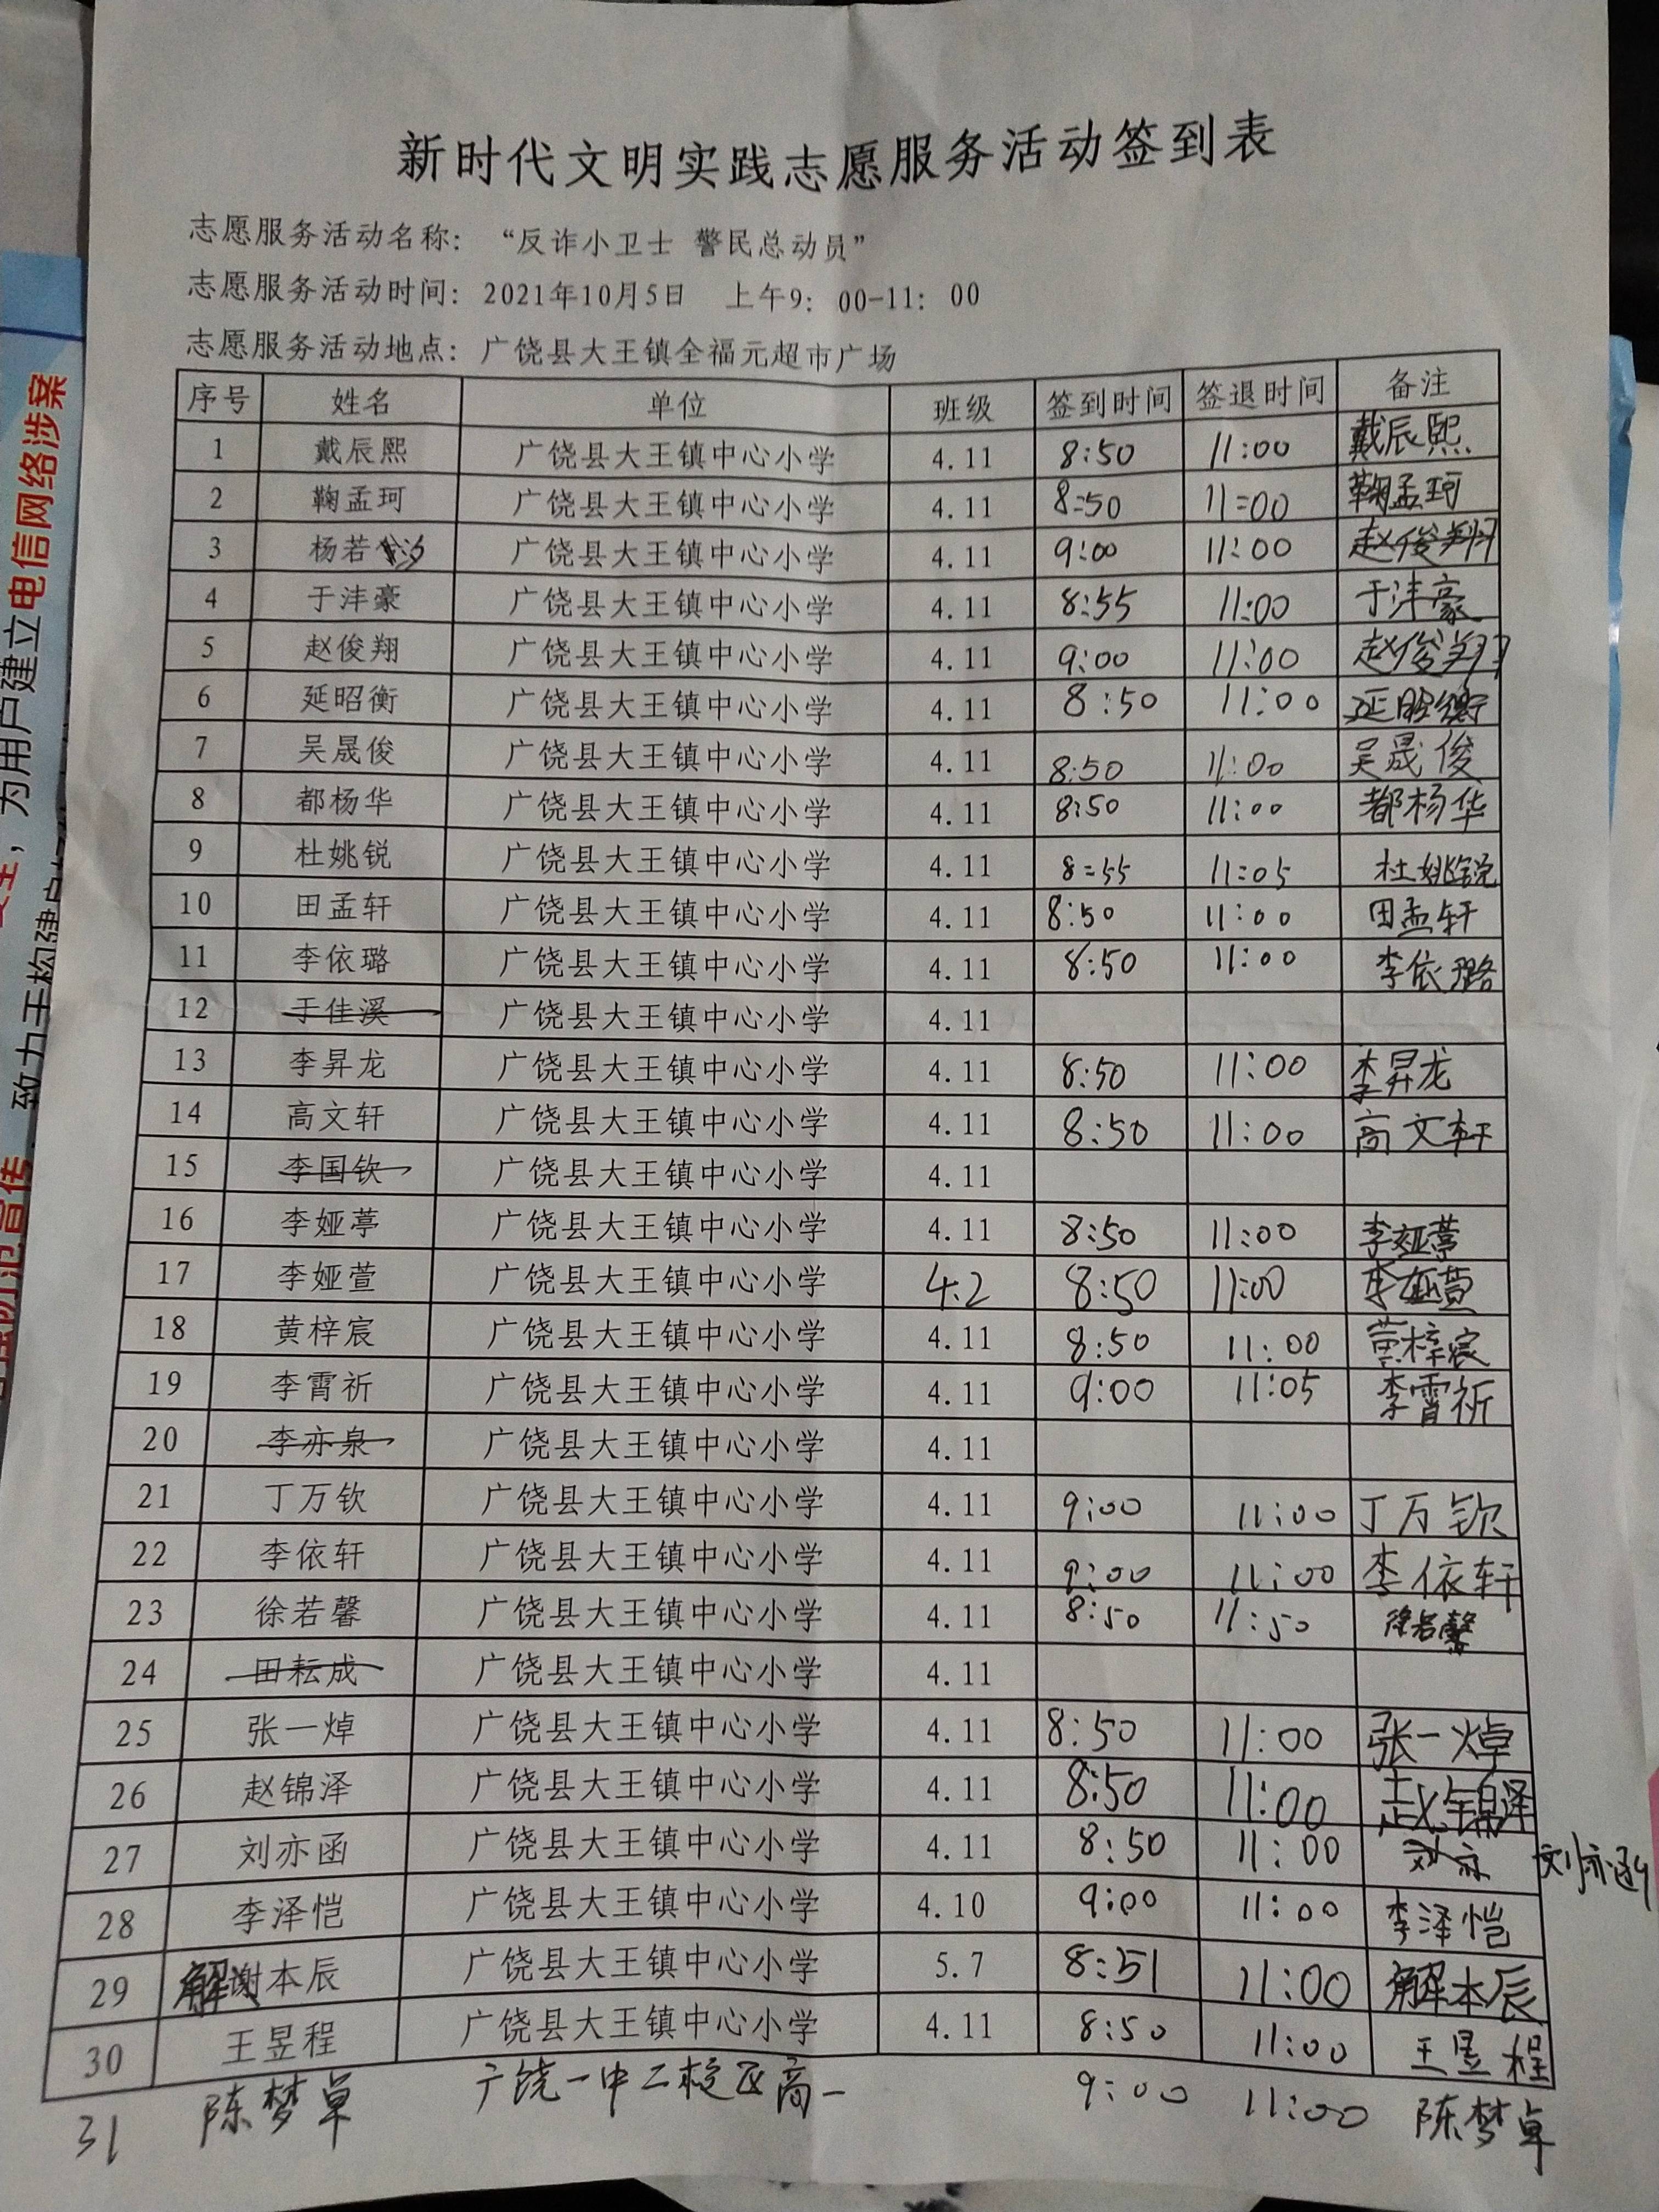 新时代文明实践志愿服务活动签到表
志愿服务活动名称：“反诈小卫士 警民总动员”
志愿服务活动时间：2021年10月5日 上午9：00-11：00
志愿服务活动地点：广饶县大王镇全福元超市广场
序号 姓名 单位 班级 签到时间 签退时间 备注
1 戴辰熙 广饶县大王镇中心小学 4.11 8:50 11:00 戴辰熙
2 鞠孟珂 广饶县大王镇中心小学 4.11 8:50 11:00 鞠孟珂
3 杨若汐 广饶县大王镇中心小学 4.11 9:00 11:00 赵俊翔
4 于沣豪 广饶县大王镇中心小学 4.11 8:55 11:00 于沣豪
5 赵俊翔 广饶县大王镇中心小学 4.11 9:00 11:00 赵俊翔
6 延昭衡 广饶县大王镇中心小学 4.11 8:50 11:00 延昭衡
7 吴晟俊 广饶县大王镇中心小学 4.11 8:50 11:00 吴晟俊
8 都杨华 广饶县大王镇中心小学 4.11 8:50 11:00 都杨华
9 杜姚锐 广饶县大王镇中心小学 4.11 8:55 11:05 杜姚锐
10 田孟轩 广饶县大王镇中心小学 4.11 8:50 11:00 田孟轩
11 李依璐 广饶县大王镇中心小学 4.11 8:50 11:00 李依璐
12 于佳溪 广饶县大王镇中心小学 4.11
13 李昇龙 广饶县大王镇中心小学 4.11 8:50 11:00 李昇龙
14 高文轩 广饶县大王镇中心小学 4.11 8:50 11:00 高文轩
15 李国钦 广饶县大王镇中心小学 4.11
16 李娅葶 广饶县大王镇中心小学 4.11 8:50 11:00 李娅葶
17 李娅萱 广饶县大王镇中心小学 4.2 8:50 11:00 李娅萱
18 黄梓宸 广饶县大王镇中心小学 4.11 8:50 11:00 黄梓宸
19 李霄祈 广饶县大王镇中心小学 4.11 9:00 11:05 李霄祈
20 李亦泉 广饶县大王镇中心小学 4.11
21 丁万钦 广饶县大王镇中心小学 4.11 9:00 11:00 丁万钦
22 李依轩 广饶县大王镇中心小学 4.11 9:00 11:00 李依轩
23 徐若馨 广饶县大王镇中心小学 4.11 8:50 11:50 徐若馨
24 田耘成 广饶县大王镇中心小学 4.11
25 张一焯 广饶县大王镇中心小学 4.11 8:50 11:00 张一焯
26 赵锦泽 广饶县大王镇中心小学 4.11 8:50 11:00 赵锦泽
27 刘亦函 广饶县大王镇中心小学 4.11 8:50 11:00 刘亦 刘亦函
28 李泽恺 广饶县大王镇中心小学 4.10 9:00 11:00 李泽恺
29 解谢本辰 广饶县大王镇中心小学 5.7 8:51 11:00 解本辰
30 王昱程 广饶县大王镇中心小学 4.11 8:50 11:00 王昱程
31 陈梦卓 广饶一中二校区高一 9:00 11:00 陈梦卓
为用户建立电信网络涉案